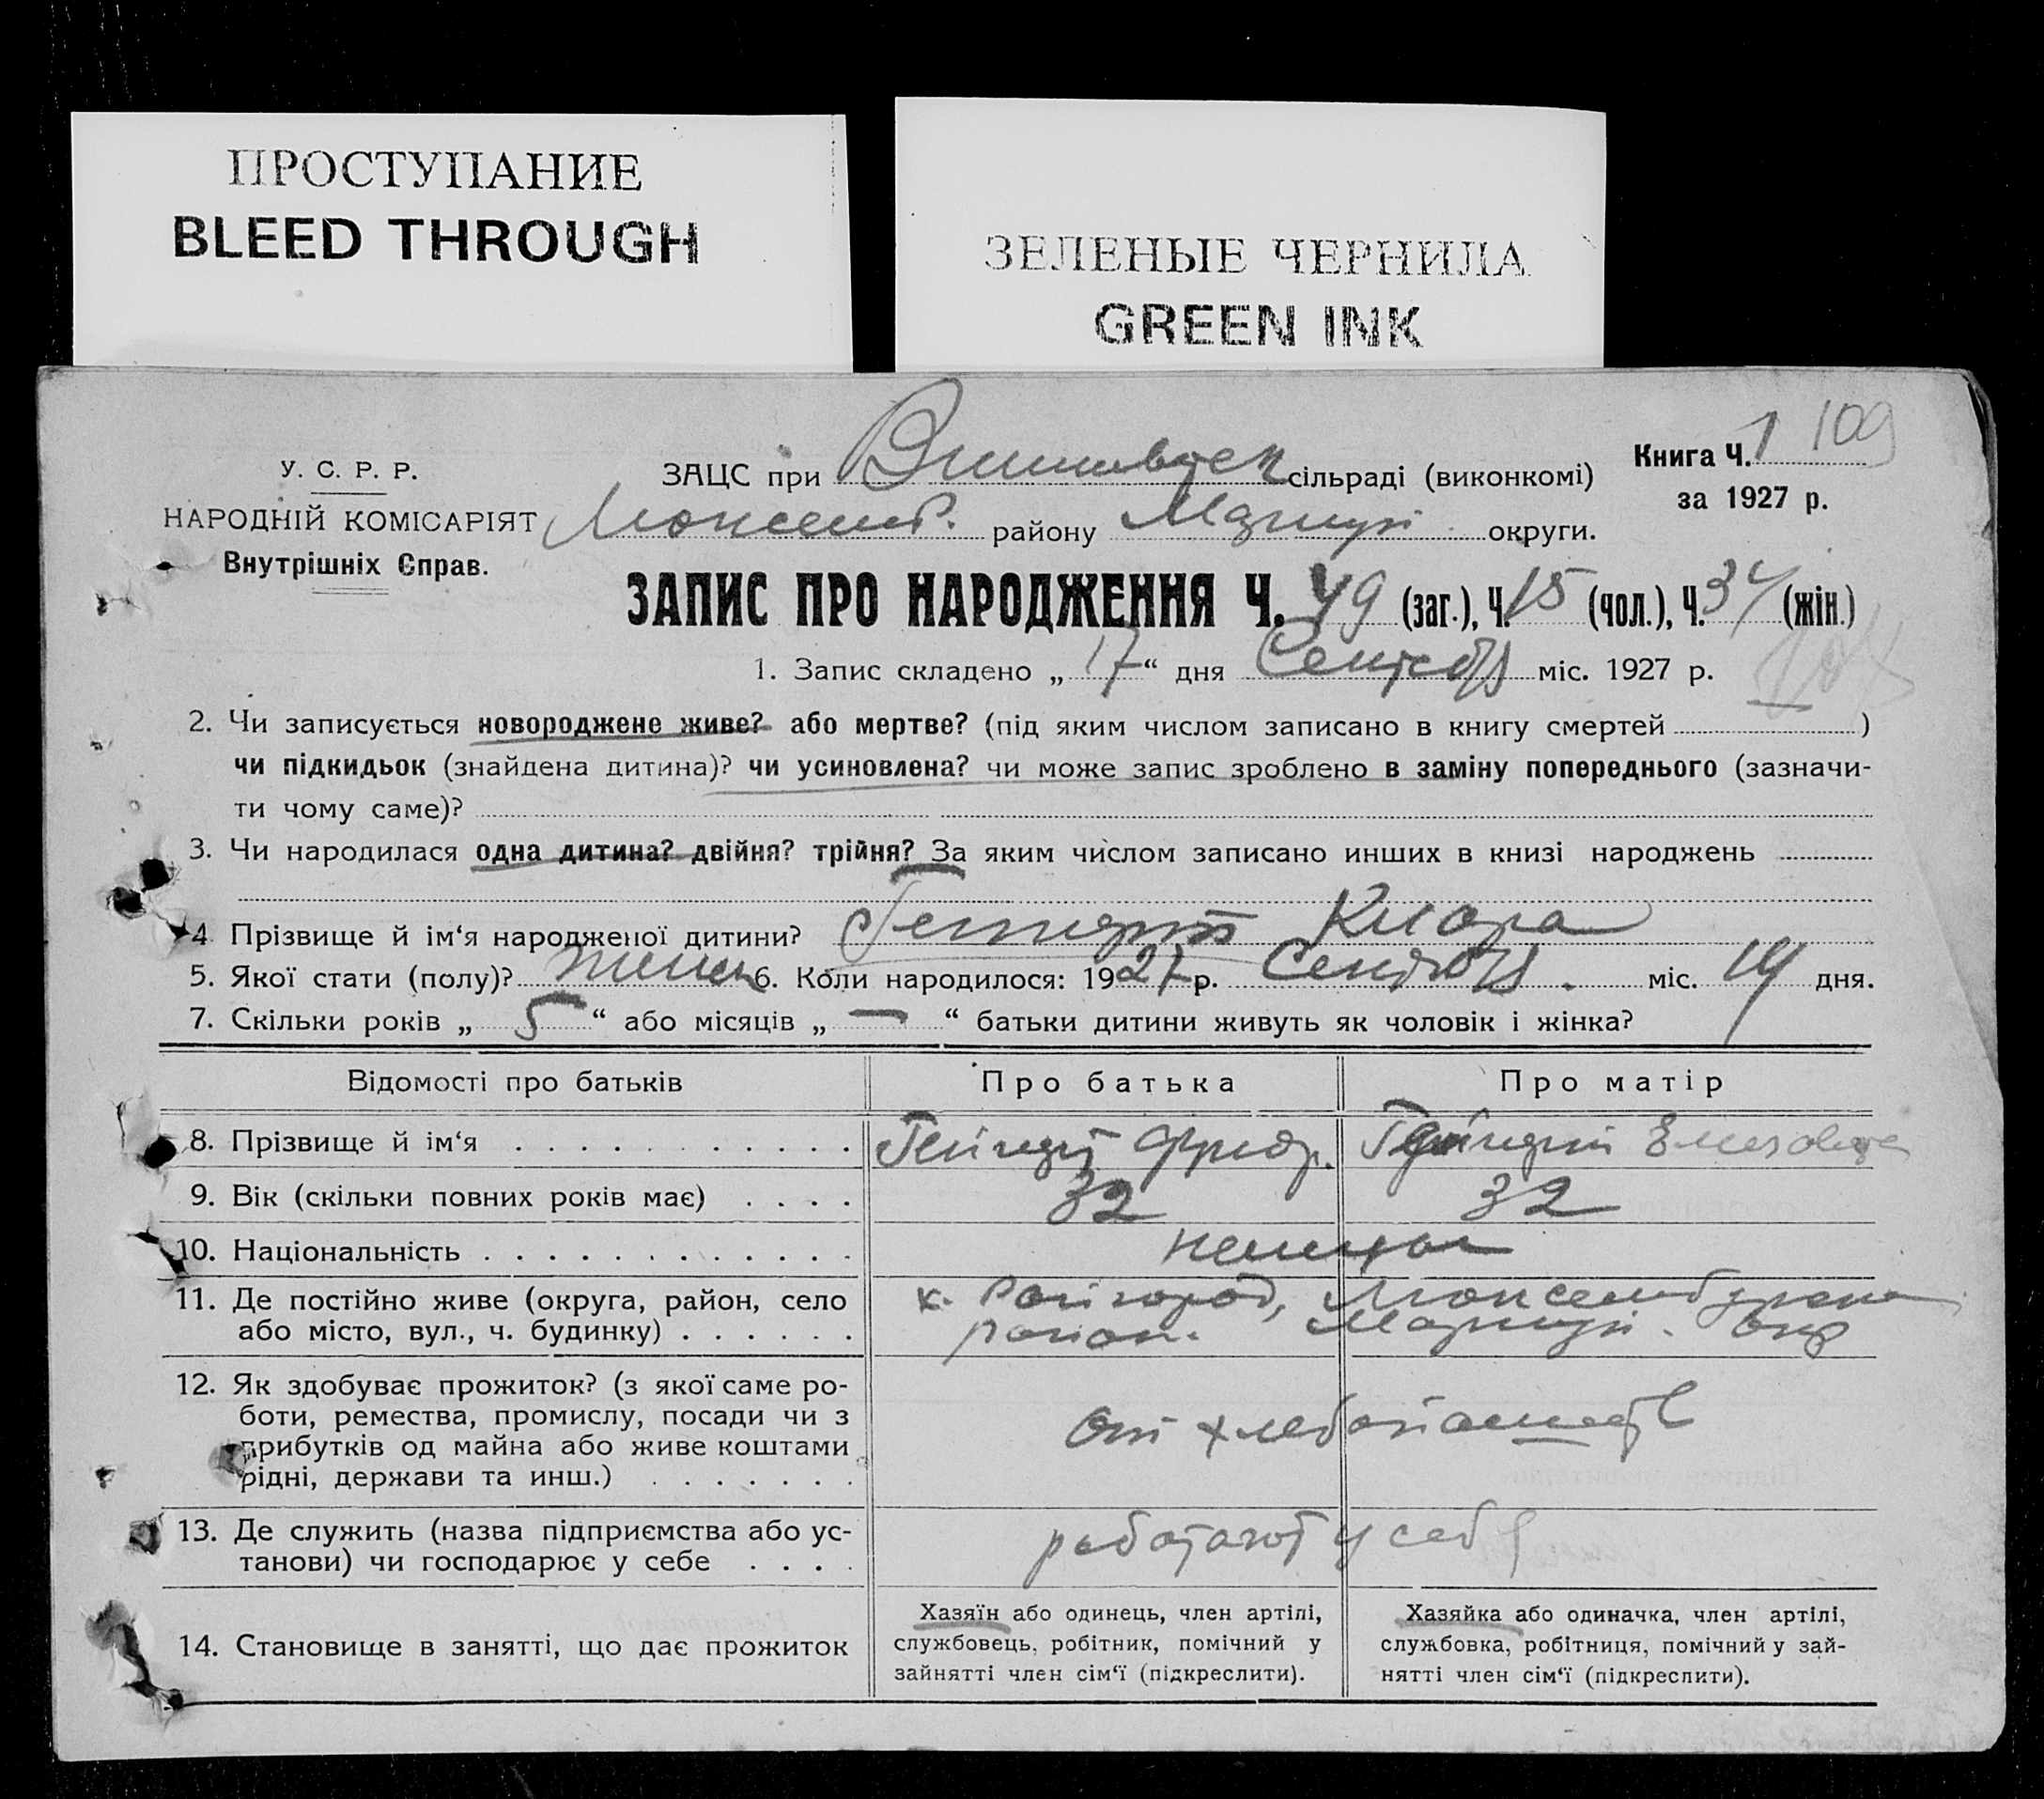 ПРОСТУПАНИЕ
BLEED THROUGH
ЗЕЛЕНЫЕ ЧЕРНИЛА
GREEN INK
109
У. С. Р. Р.
НАРОДНІЙ КОМІСАРІЯТ
Внутрішніх Справ.
ЗАЦС при сільраді (виконкомі)
Книга Ч. 1
за 1927 р.
району округи.
ЗАПИС ПРО НАРОДЖЕННЯ Ч. 49 (заг.), Ч. 15 (чол.), Ч. 34 (жін.)
1. Запис складено „ 17 “ дня міс. 1927 р.
2. Чи записується новороджене живе? або мертве? (під яким числом записано в книгу смертей )
чи підкидьок (знайдена дитина)? чи усиновлена? чи може запис зроблено в заміну попереднього (зазначи-
ти чому саме)?
3. Чи народилася одна дитина? двійня? трійня? За яким числом записано инших в книзі народжень
4 Прізвище й ім‘я народженої дитини? Клара
5. Якої стати (полу)? женск 6. Коли народилося: 1927 р. міс. 14 дня.
7. Скільки років „ 5 “ або місяців „ — “ батьки дитини живуть як чоловік і жінка?
Відомості про батьків Про батька Про матір
8. Прізвище й ім‘я Фридр. Елизавета
9. Вік (скільки повних років має) 32 32
10. Національність немцы
11. Де постійно живе (округа, район, село
або місто, вул., ч. будинку)
12. Як здобуває прожиток? (з якої саме ро-
боти, ремества, промислу, посади чи з
прибутків од майна або живе коштами
рідні, держави та инш.)
от хлебопашеств
13. Де служить (назва підприємства або ус-
танови) чи господарює у себе
работают у себя
14. Становище в занятті, що дає прожиток
Хазяїн або одинець, член артілі,
службовець, робітник, помічний у
зайнятті член сім‘ї (підкреслити).
Хазяйка або одиначка, член артілі,
службовка, робітниця, помічний у зай-
нятті член сім‘ї (підкреслити).